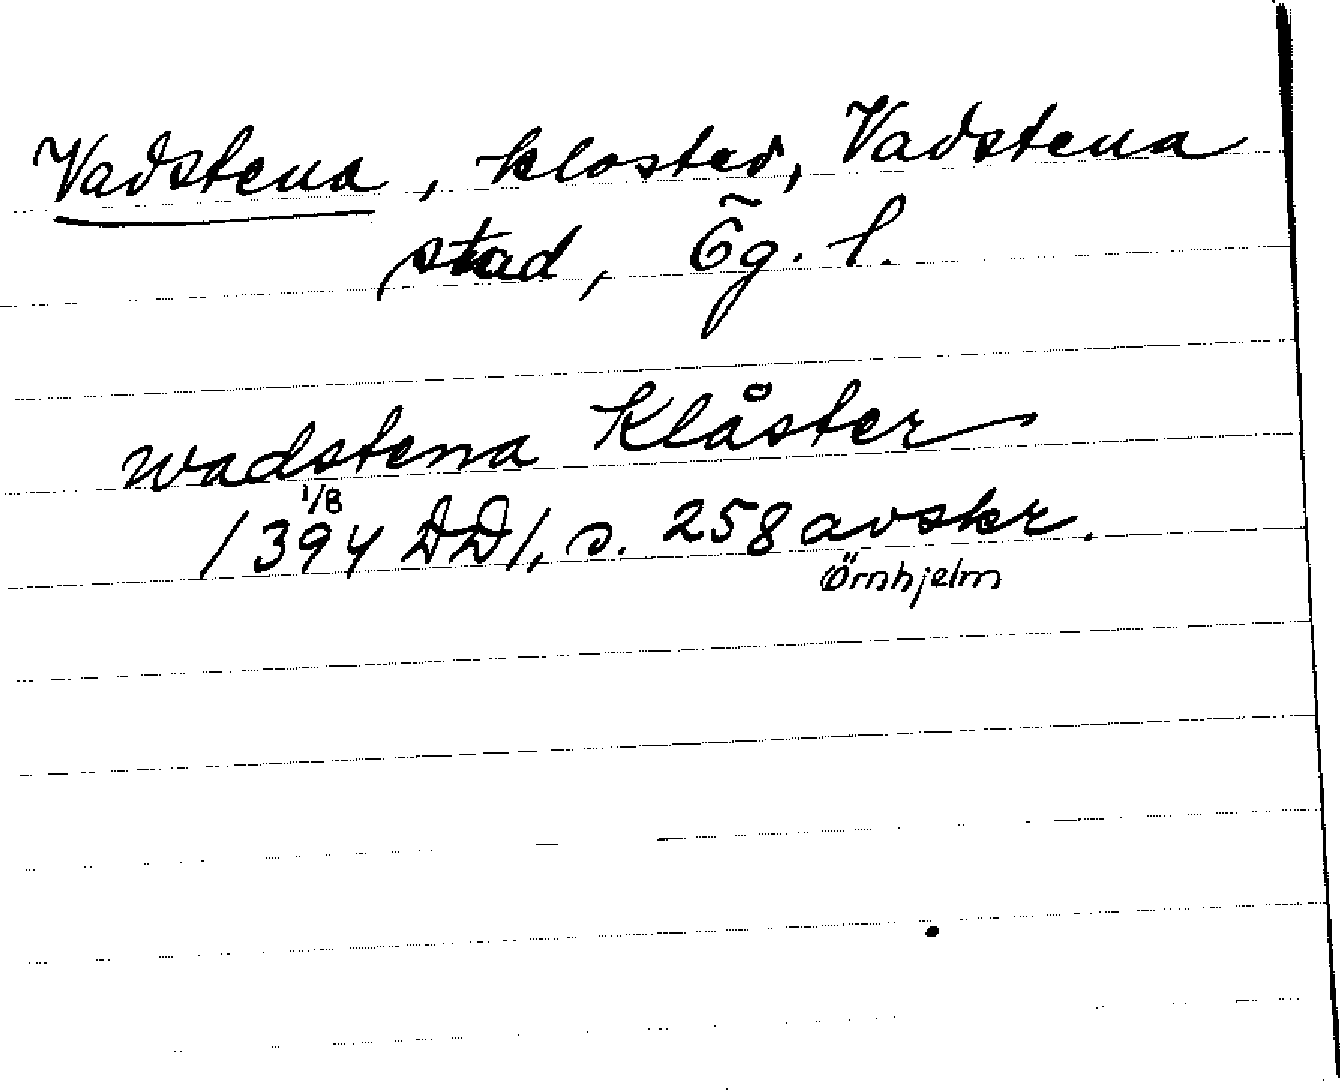 Vadstena, kloster, Vadstena
stad, Ög. l.
wadstena Klåster
1/8
1394 DD1, s. 258 avskr.
Örnhjelm